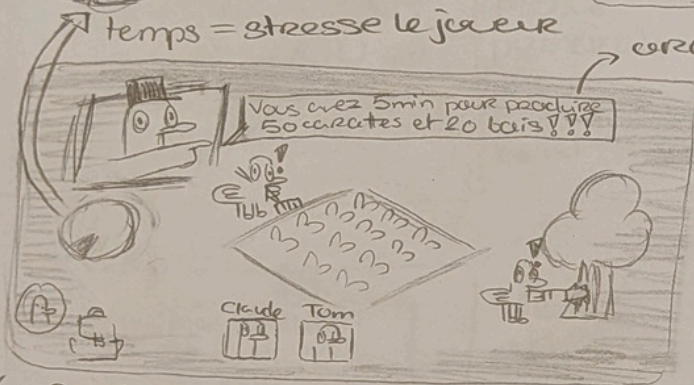 temps = stresse le joueur
Vous avez 5min pour produire
50 carottes et 20 bois !!!
Claude Tom